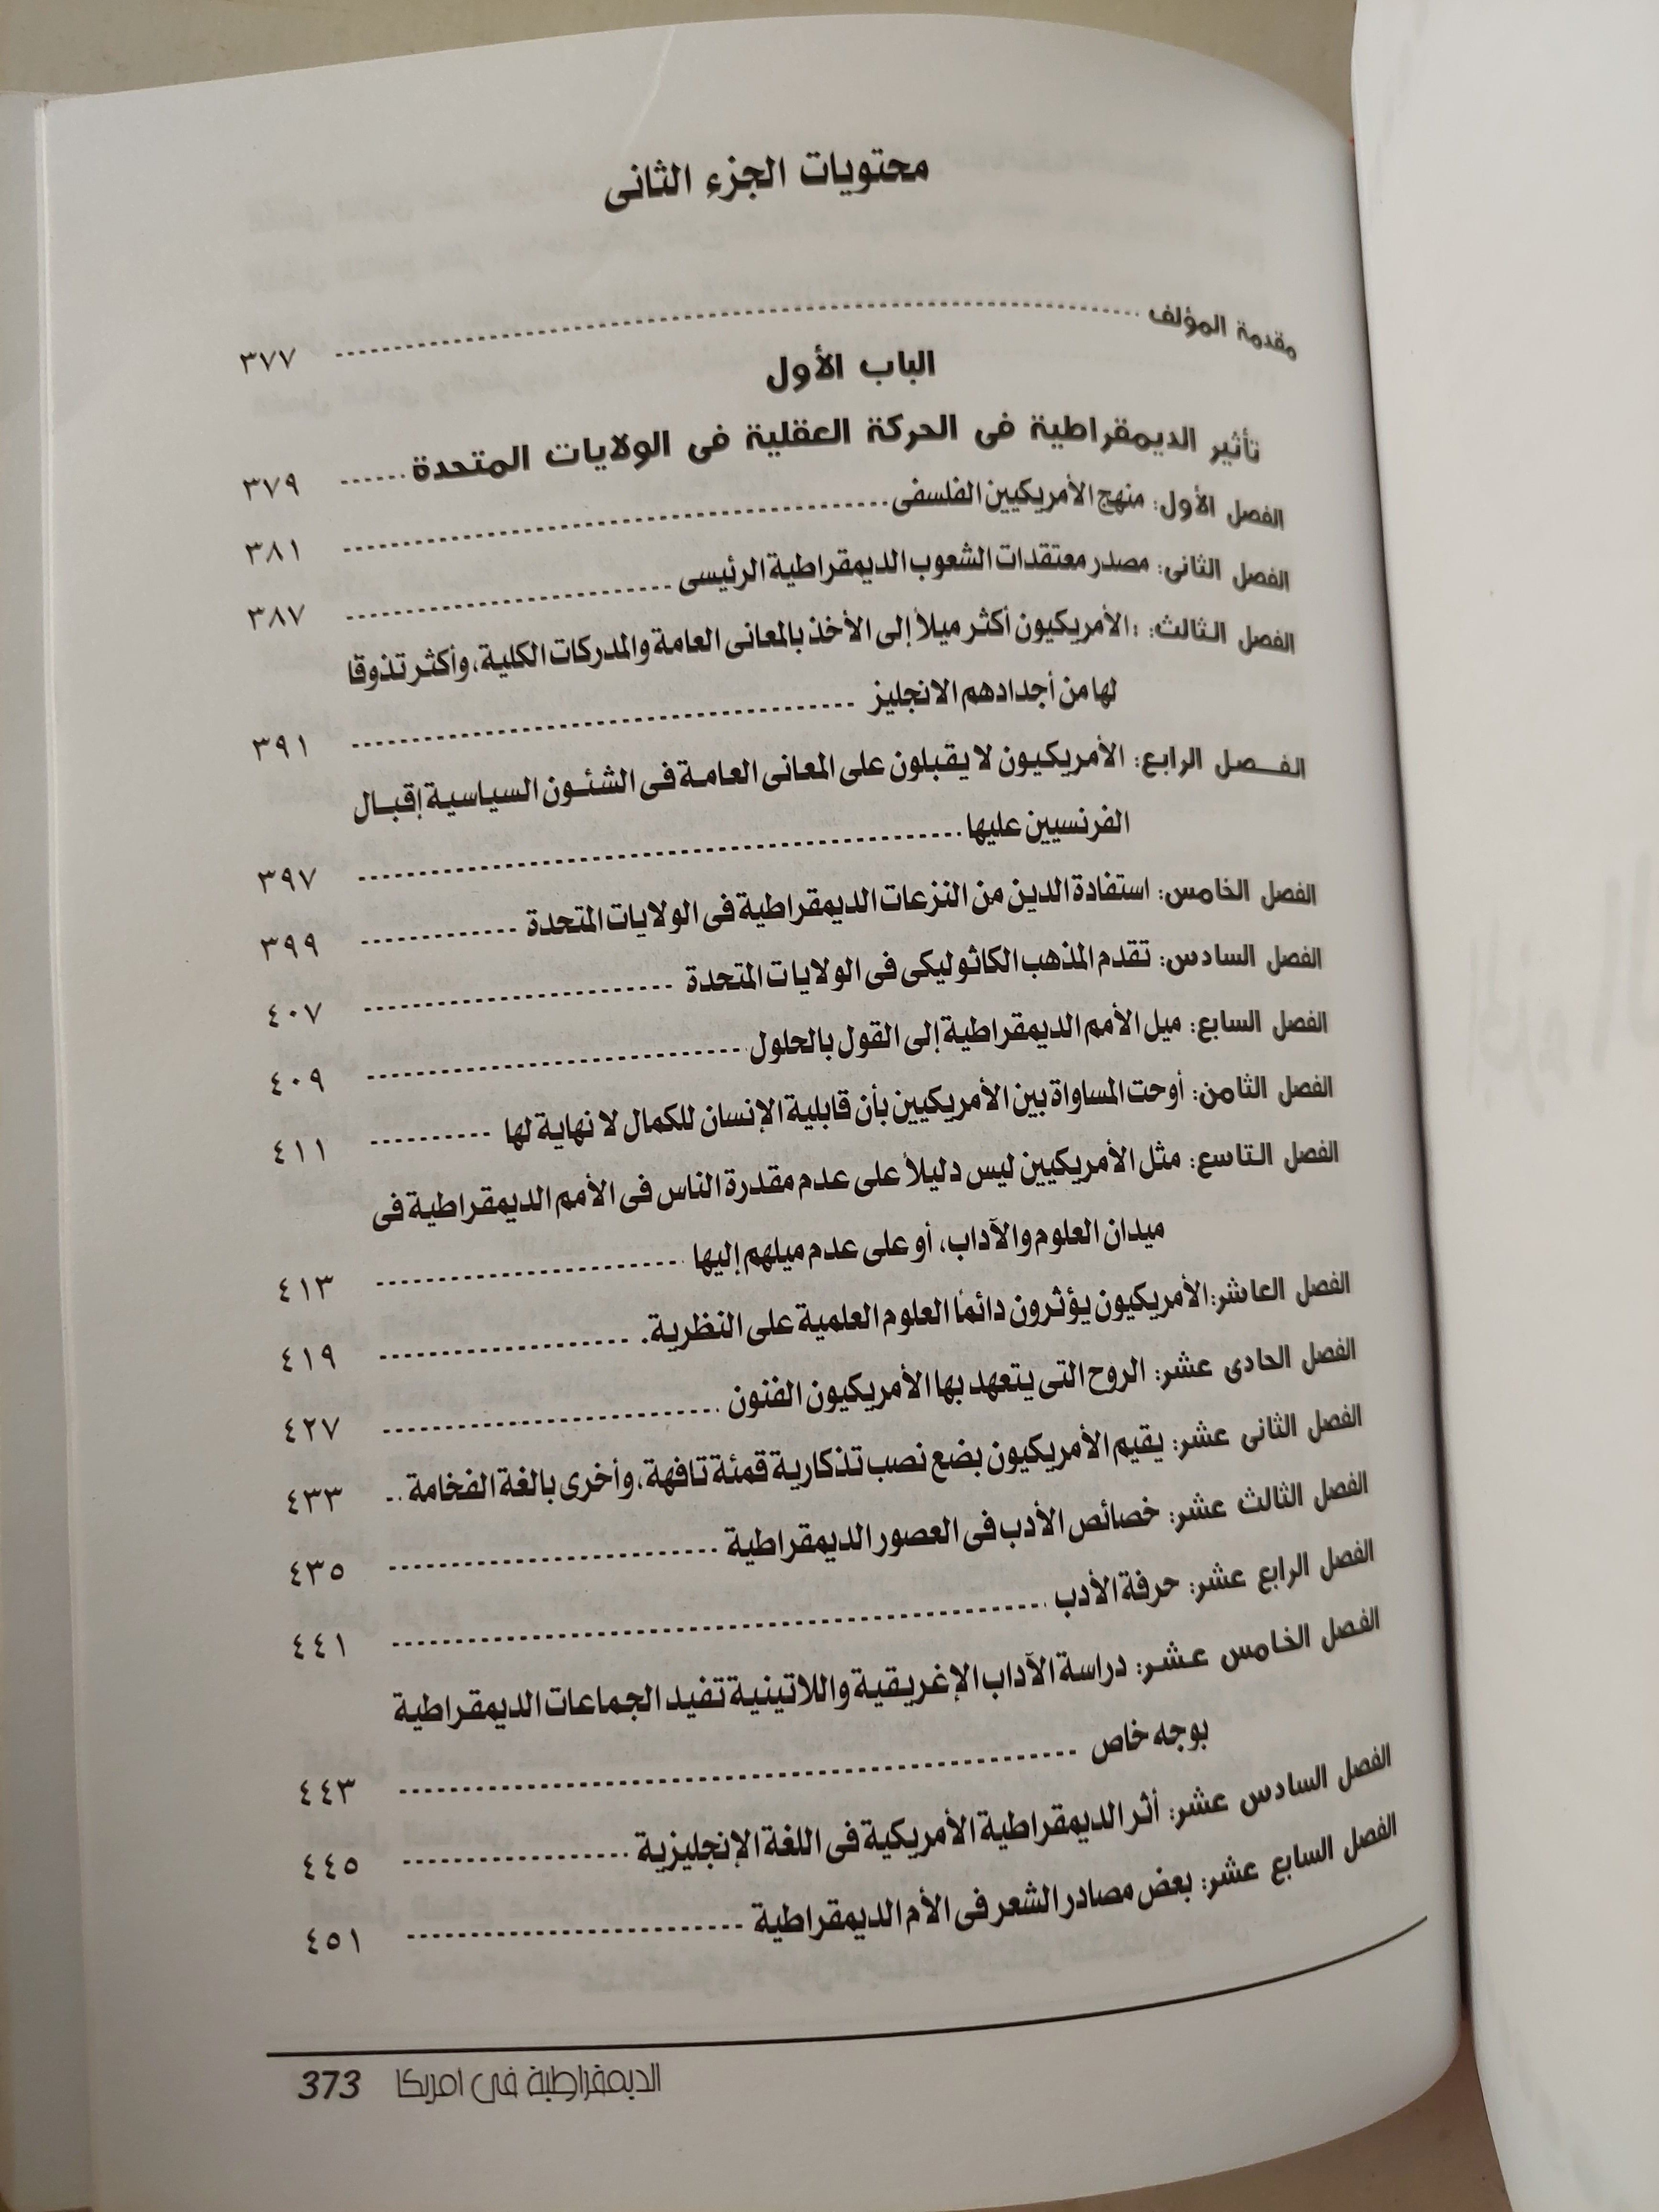 محتويات الجزء الثانى
مقدمة المؤلف ................ ٣٧٧
الباب الأول
تأثير الديمقراطية فى الحركة العقلية فى الولايات المتحدة ...... ٣٧٩
الفصل الأول: منهج الأمريكيين الفلسفى ................ ٣٨١
الفصل الثانى: مصدر معتقدات الشعوب الديمقراطية الرئيسى ................ ٣٨٧
الفصل الثالث: : الأمريكيون أكثر ميلاً إلى الأخذ بالمعانى العامة والمدركات الكلية، وأكثر تذوقا
لها من أجدادهم الانجليز ................ ٣٩١
الفصل الرابع: الأمريكيون لا يقبلون على المعانى العامة فى الشئون السياسية إقبال
الفرنسيين عليها ................ ٣٩٧
الفصل الخامس: استفادة الدين من النزعات الديمقراطية فى الولايات المتحدة ............ ٣٩٩
الفصل السادس: تقدم المذهب الكاثوليكى فى الولايات المتحدة ................ ٤٠٧
الفصل السابع: ميل الأمم الديمقراطية إلى القول بالحلول ................ ٤٠٩
الفصل الثامن: أوحت المساواة بين الأمريكيين بأن قابلية الإنسان للكمال لا نهاية لها .......... ٤١١
الفصل التاسع: مثل الأمريكيين ليس دليلاً على عدم مقدرة الناس فى الأمم الديمقراطية فى
ميدان العلوم والآداب، أو على عدم ميلهم إليها ................ ٤١٣
الفصل العاشر: الأمريكيون يؤثرون دائمًا العلوم العلمية على النظرية. ................ ٤١٩
الفصل الحادى عشر: الروح التى يتعهد بها الأمريكيون الفنون ................ ٤٢٧
الفصل الثانى عشر: يقيم الأمريكيون بضع نصب تذكارية قمئة تافهة، وأخرى بالغة الفخامة .. ٤٣٣
الفصل الثالث عشر: خصائص الأدب فى العصور الديمقراطية ................ ٤٣٥
الفصل الرابع عشر: حرفة الأدب ................ ٤٤١
الفصل الخامس عشر: دراسة الآداب الإغريقية واللاتينية تفيد الجماعات الديمقراطية
بوجه خاص ................ ٤٤٣
الفصل السادس عشر: أثر الديمقراطية الأمريكية فى اللغة الإنجليزية ................ ٤٤٥
الفصل السابع عشر: بعض مصادر الشعر فى الأم الديمقراطية ................ ٤٥١
الديمقراطية فى امريكا 373